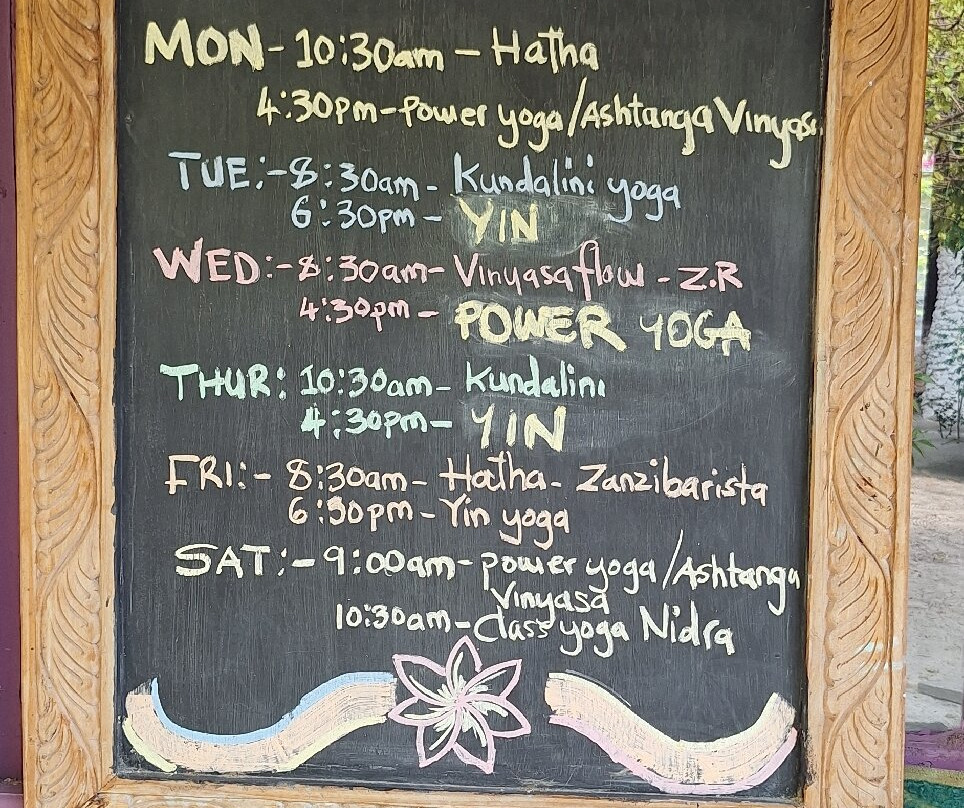 MON- 10:30am - Hatha
4:30pm-Power yoga/Ashtanga Vinyasa
TUE:-8:30am- Kundalini yoga
6:30pm- YIN
WED:-8:30am- Vinyasa flow - Z.R
4:30pm- POWER YOGA
THUR: 10:30am- Kundalini
4:30pm- YIN
FRI:- 8:30am- Hatha- Zanzibarista
6:30pm- Yin yoga
SAT:- 9:00am- power yoga/Ashtanga
Vinyasa
10:30am- Class yoga Nidra